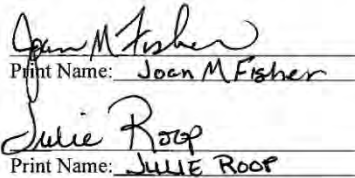 Joan M Fisher
Print Name: Joan M Fisher
Julie Roop
Print Name: JULIE ROOP